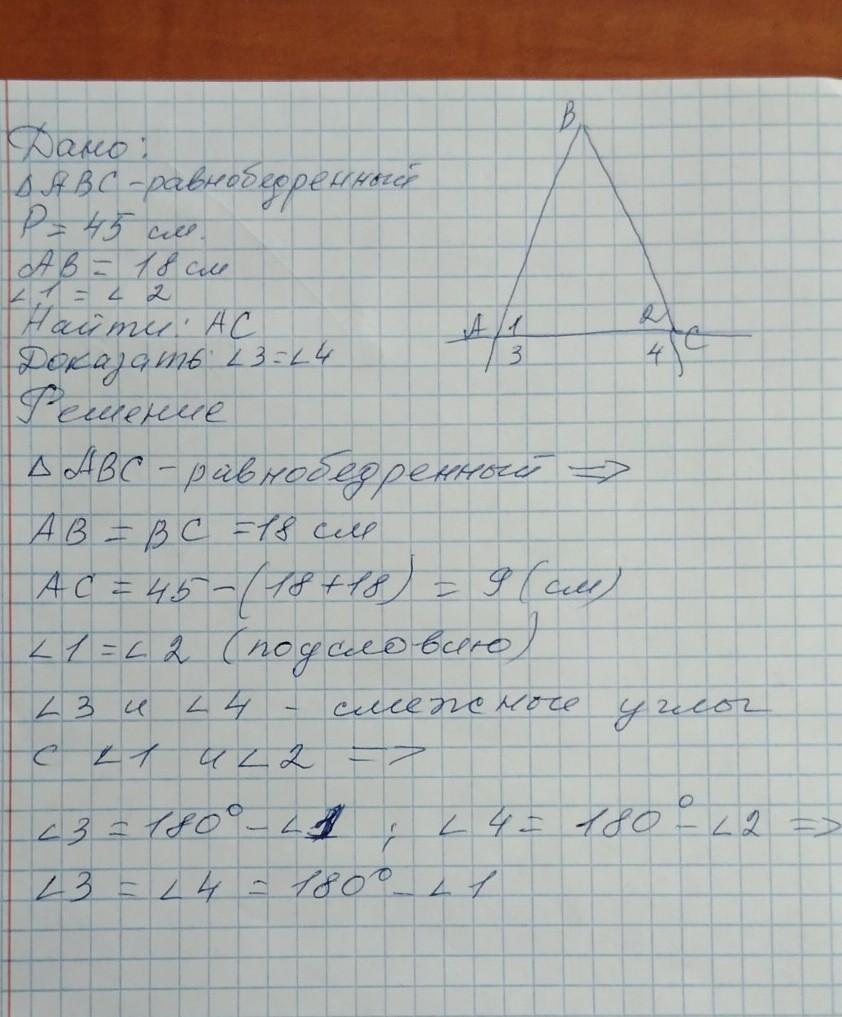 Дано:
Δ ABC - равнобедренный
P = 45 см.
AB = 18 см
∠1 = ∠2
Найти: AC
Доказать: ∠3=∠4
B
A 1 2 C
3 4
Решение
Δ ABC - равнобедренный =>
AB = BC = 18 см
AC = 45 - (18+18) = 9 (см)
∠1 = ∠2 (по условию)
∠3 и ∠4 - смежные углы
с ∠1 и ∠2 =>
∠3 = 180° - ∠1 ; ∠4 = 180° - ∠2 =>
∠3 = ∠4 = 180° - ∠1